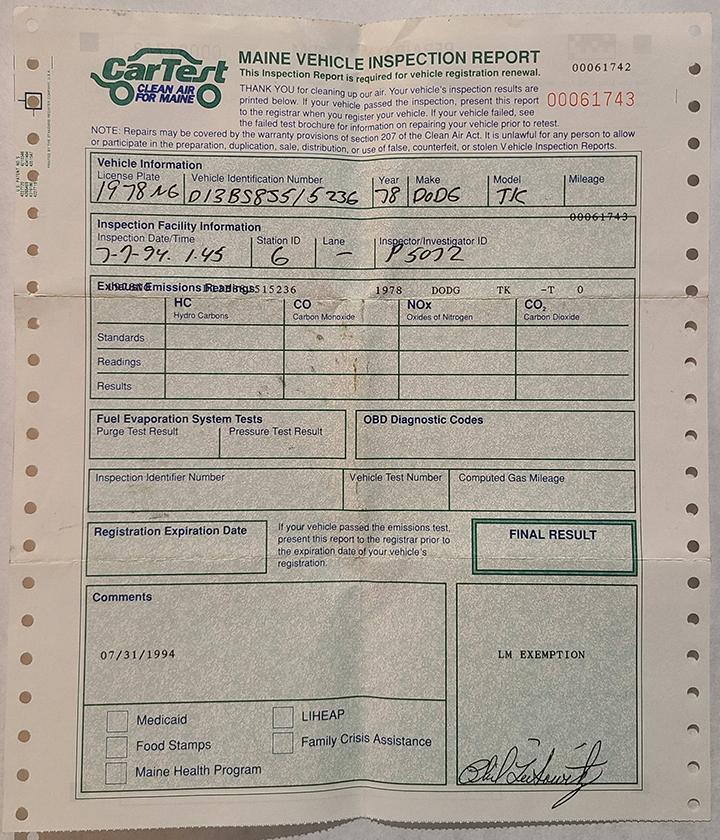 CarTest
CLEAN AIR
FOR MAINE
MAINE VEHICLE INSPECTION REPORT
This Inspection Report is required for vehicle registration renewal.
00061742
THANK YOU for cleaning up our air. Your vehicle's inspection results are
printed below. If your vehicle passed the inspection, present this report
to the registrar when you register your vehicle. If your vehicle failed, see
the failed test brochure for information on repairing your vehicle prior to retest.
00061743
NOTE: Repairs may be covered by the warranty provisions of section 207 of the Clean Air Act. It is unlawful for any person to allow
or participate in the preparation, duplication, sale, distribution, or use of false, counterfeit, or stolen Vehicle Inspection Reports.
Vehicle Information
License Plate Vehicle Identification Number Year Make Model Mileage
1978NG D13BS8S515236 78 DODG TK
00061743
Inspection Facility Information
Inspection Date/Time Station ID Lane Inspector/Investigator ID
7-7-94. 1.45 6 — P5072
Exhaust Emissions Readings
1978 DODG TK -T 0
HC CO NOx CO2
Hydro Carbons Carbon Monoxide Oxides of Nitrogen Carbon Dioxide
Standards
Readings
Results
Fuel Evaporation System Tests OBD Diagnostic Codes
Purge Test Result Pressure Test Result
Inspection Identifier Number Vehicle Test Number Computed Gas Mileage
Registration Expiration Date
If your vehicle passed the emissions test,
present this report to the registrar prior to
the expiration date of your vehicle's
registration.
FINAL RESULT
Comments
07/31/1994 LM EXEMPTION
Medicaid LIHEAP
Food Stamps Family Crisis Assistance
Maine Health Program